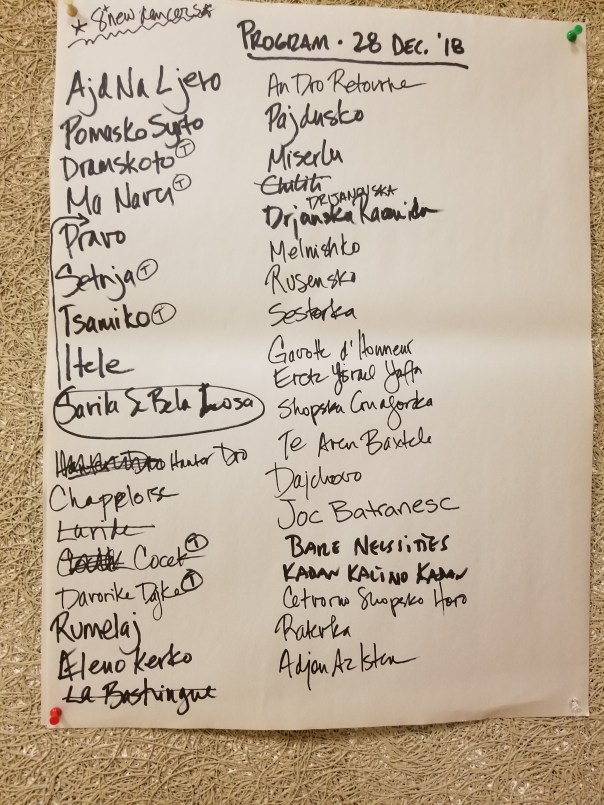 * 8 new dancers *
PROGRAM · 28 DEC. '18
Ajd Na Ljevo
Pomasko Syrto
Dramskoto T
Ma Navu T
Pravo
Setnja T
Tsamiko T
Itele
Savila Se Bela Loosa
Hanter Dro Hanter Dro
Chappeloise
Laride
Cocek T
Davorike Dajke T
Rumelaj
Eleno Kerko
La Bastringue
An Dro Retourne
Pajdusko
Miserlu
Chilili
DRIJANOVSKA
Drjanska Racenica
Melnishko
Rusensko
Sestorka
Gavotte d'Honneur
Eretz Yisrael Yaffa
Shopska Crnagorka
Te Aven Baxtele
Dajchovo
Joc Batranesc
BARE NECESSITIES
KADAN KALINO KADAN
Cetvorno Shopsko Horo
Raterka
Adjon Az Isten